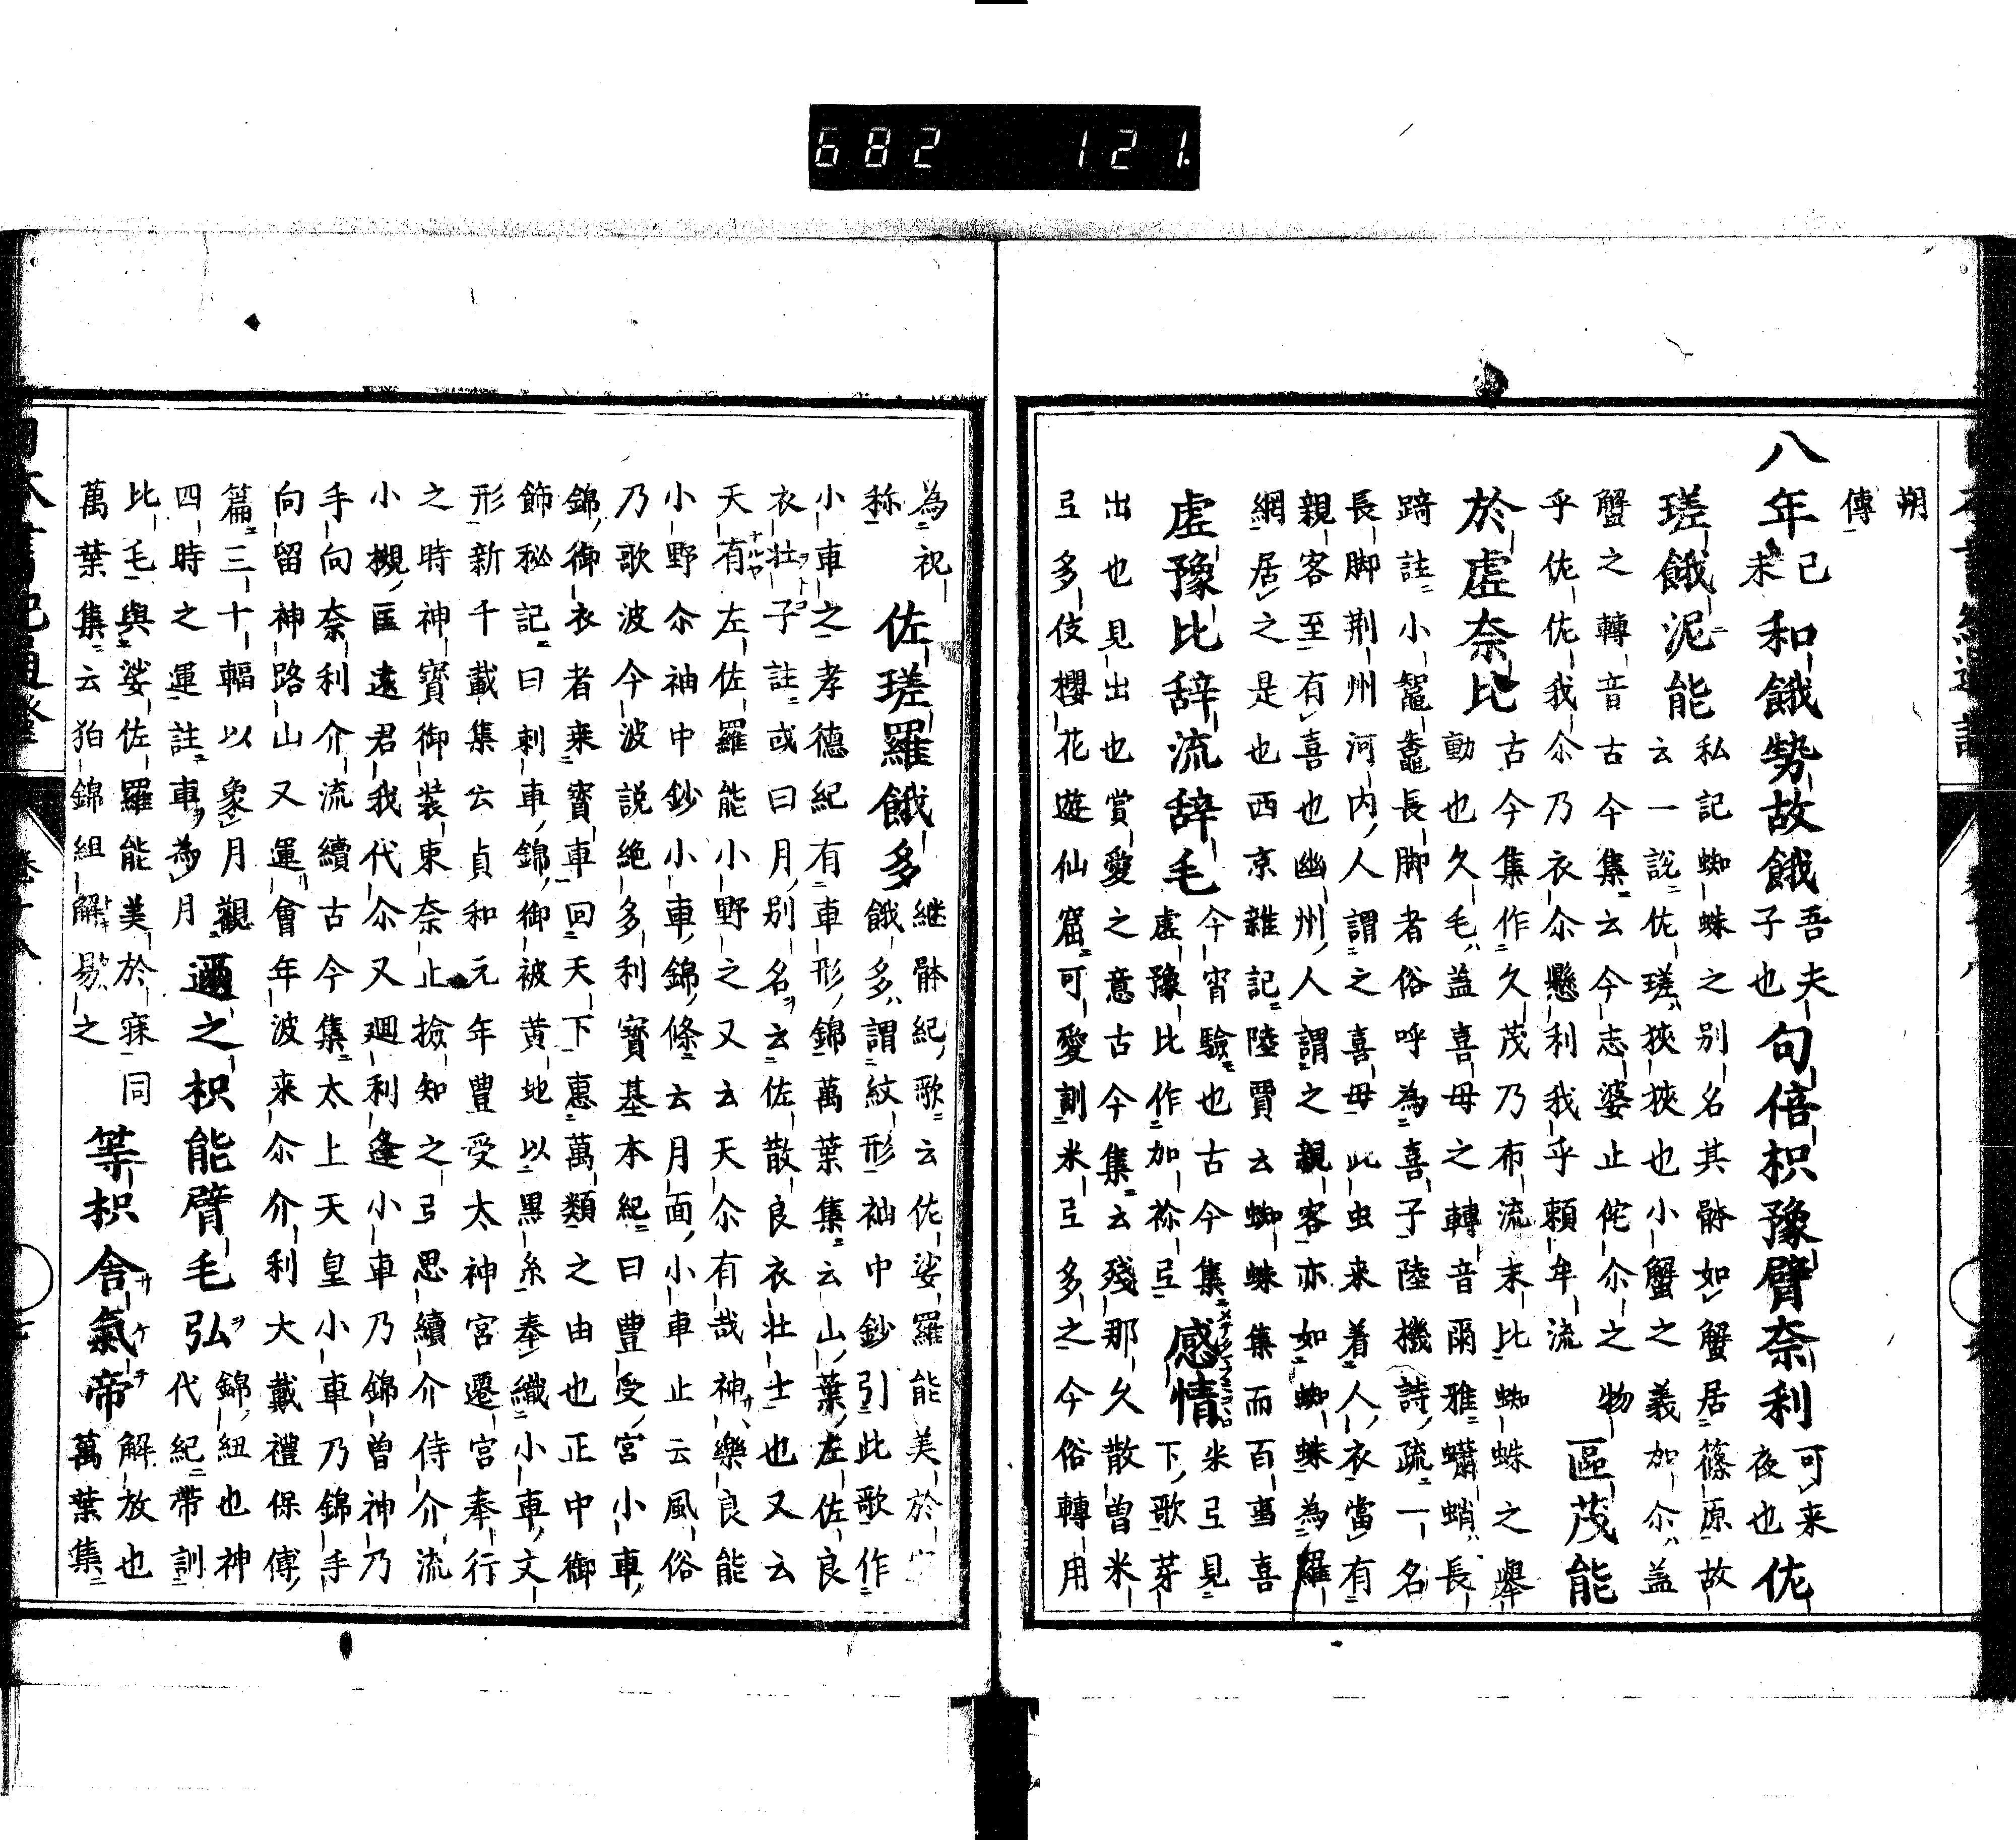 682 121.
朔
傳
八年己未和餓勢故餓吾夫子也句倍枳豫臂奈利可来夜也佐
瑳餓泥能私記蜘蛛之別名其骵如蟹居篠原故
云一説佐瑳狹狹也小蟹之義加尒盖
蟹之轉音古今集云今志婆止侘尒之物
乎佐佐我尒乃衣尒懸利我乎頼牟流區茂能
於虚奈比古今集作久茂乃布流末比蜘蛛之舉
動也久毛盖喜母之轉音爾雅蠨蛸長
踦註小鼅鼄長脚者俗呼為喜子陸機詩疏一名
長脚荆州河内人謂之喜母此虫来着人衣當有
親客至有喜也幽州人謂之親客亦如蜘蛛為羅
網居之是也西京雜記陸賈云蜘蛛集而百事喜
虚豫比辞流辞毛今宵驗也古今集
虚豫比作加祢弖感情米弖見
下歌芽
出也見出也賞愛之意古今集云殘那久散曽米
弖多伎櫻花遊仙窟可愛訓米弖多之今俗轉用
為祝
称佐瑳羅餓多継骵紀歌云佐娑羅能美於
餓多謂紋形袖中鈔引此歌作
小車之孝德紀有車形錦萬葉集云山葉左佐良
衣壮子註或曰月別名云佐散良衣壮士也又云
天有左佐羅能小野之又云天尒有哉神樂良能
小野尒袖中鈔小車錦條云月面小車止云風俗
乃歌波今波説絶多利寳基本紀曰豊受宮小車
錦御衣者乗寳車回天下惠萬類之由也正中御
飾秘記曰刺車錦御被黄地以黒糸奉織小車文
形新千載集云貞和元年豊受太神宮遷宮奉行
之時神寳御装束奈止撿知之弖思續介侍介流
小槻匡遠君我代尒又廻利逢小車乃錦曽神乃
手向奈利介流續古今集太上天皇小車乃錦手
向留神路山又運會年波来尒介利大戴禮保傅
篇三十輻以象月觀
四時之運註車為月邇之枳能臂毛弘錦紐也神
代紀帶訓
比毛與娑佐羅能美於寐同
萬葉集云狛錦紐解易之等枳舎氣帝解放也
萬葉集